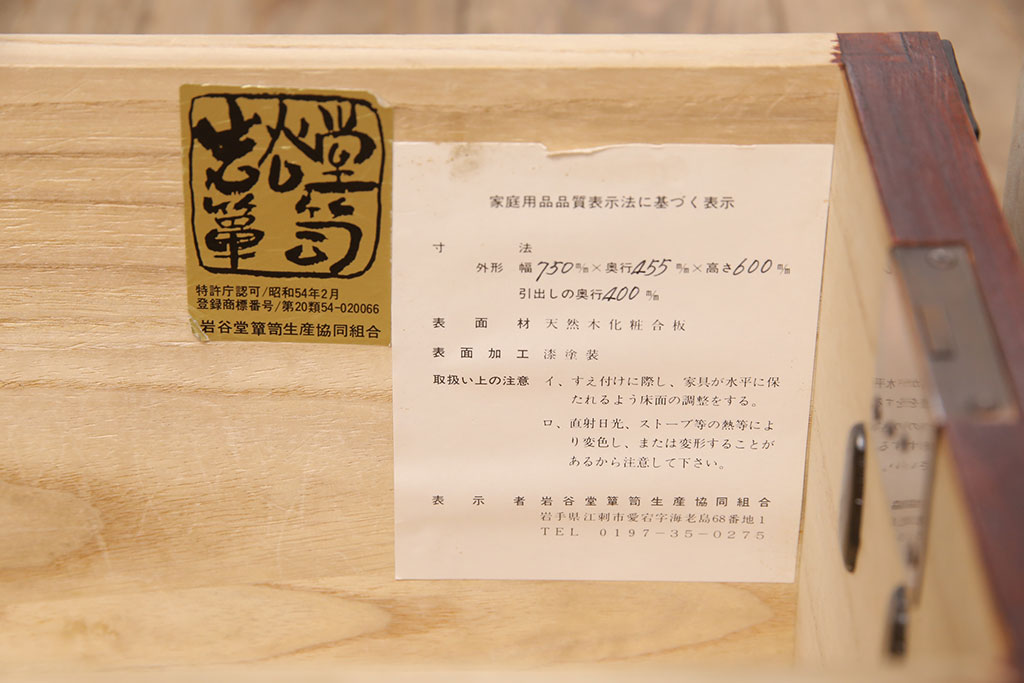 岩谷堂
箪笥
特許庁認可/昭和54年2月
登録商標番号/第20類54-020066
岩谷堂簞笥生産協同組合
家庭用品品質表示法に基づく表示
寸法
外形 幅750m/m×奥行455m/m×高さ600m/m
引出しの奥行400m/m
表面材 天然木化粧合板
表面加工 漆塗装
取扱い上の注意 イ、すえ付けに際し、家具が水平に保
たれるよう床面の調整をする。
ロ、直射日光、ストーブ等の熱等によ
り変色し、または変形することが
あるから注意して下さい。
表示者 岩谷堂簞笥生産協同組合
岩手県江刺市愛宕字海老島68番地1
TEL 0197-35-0275